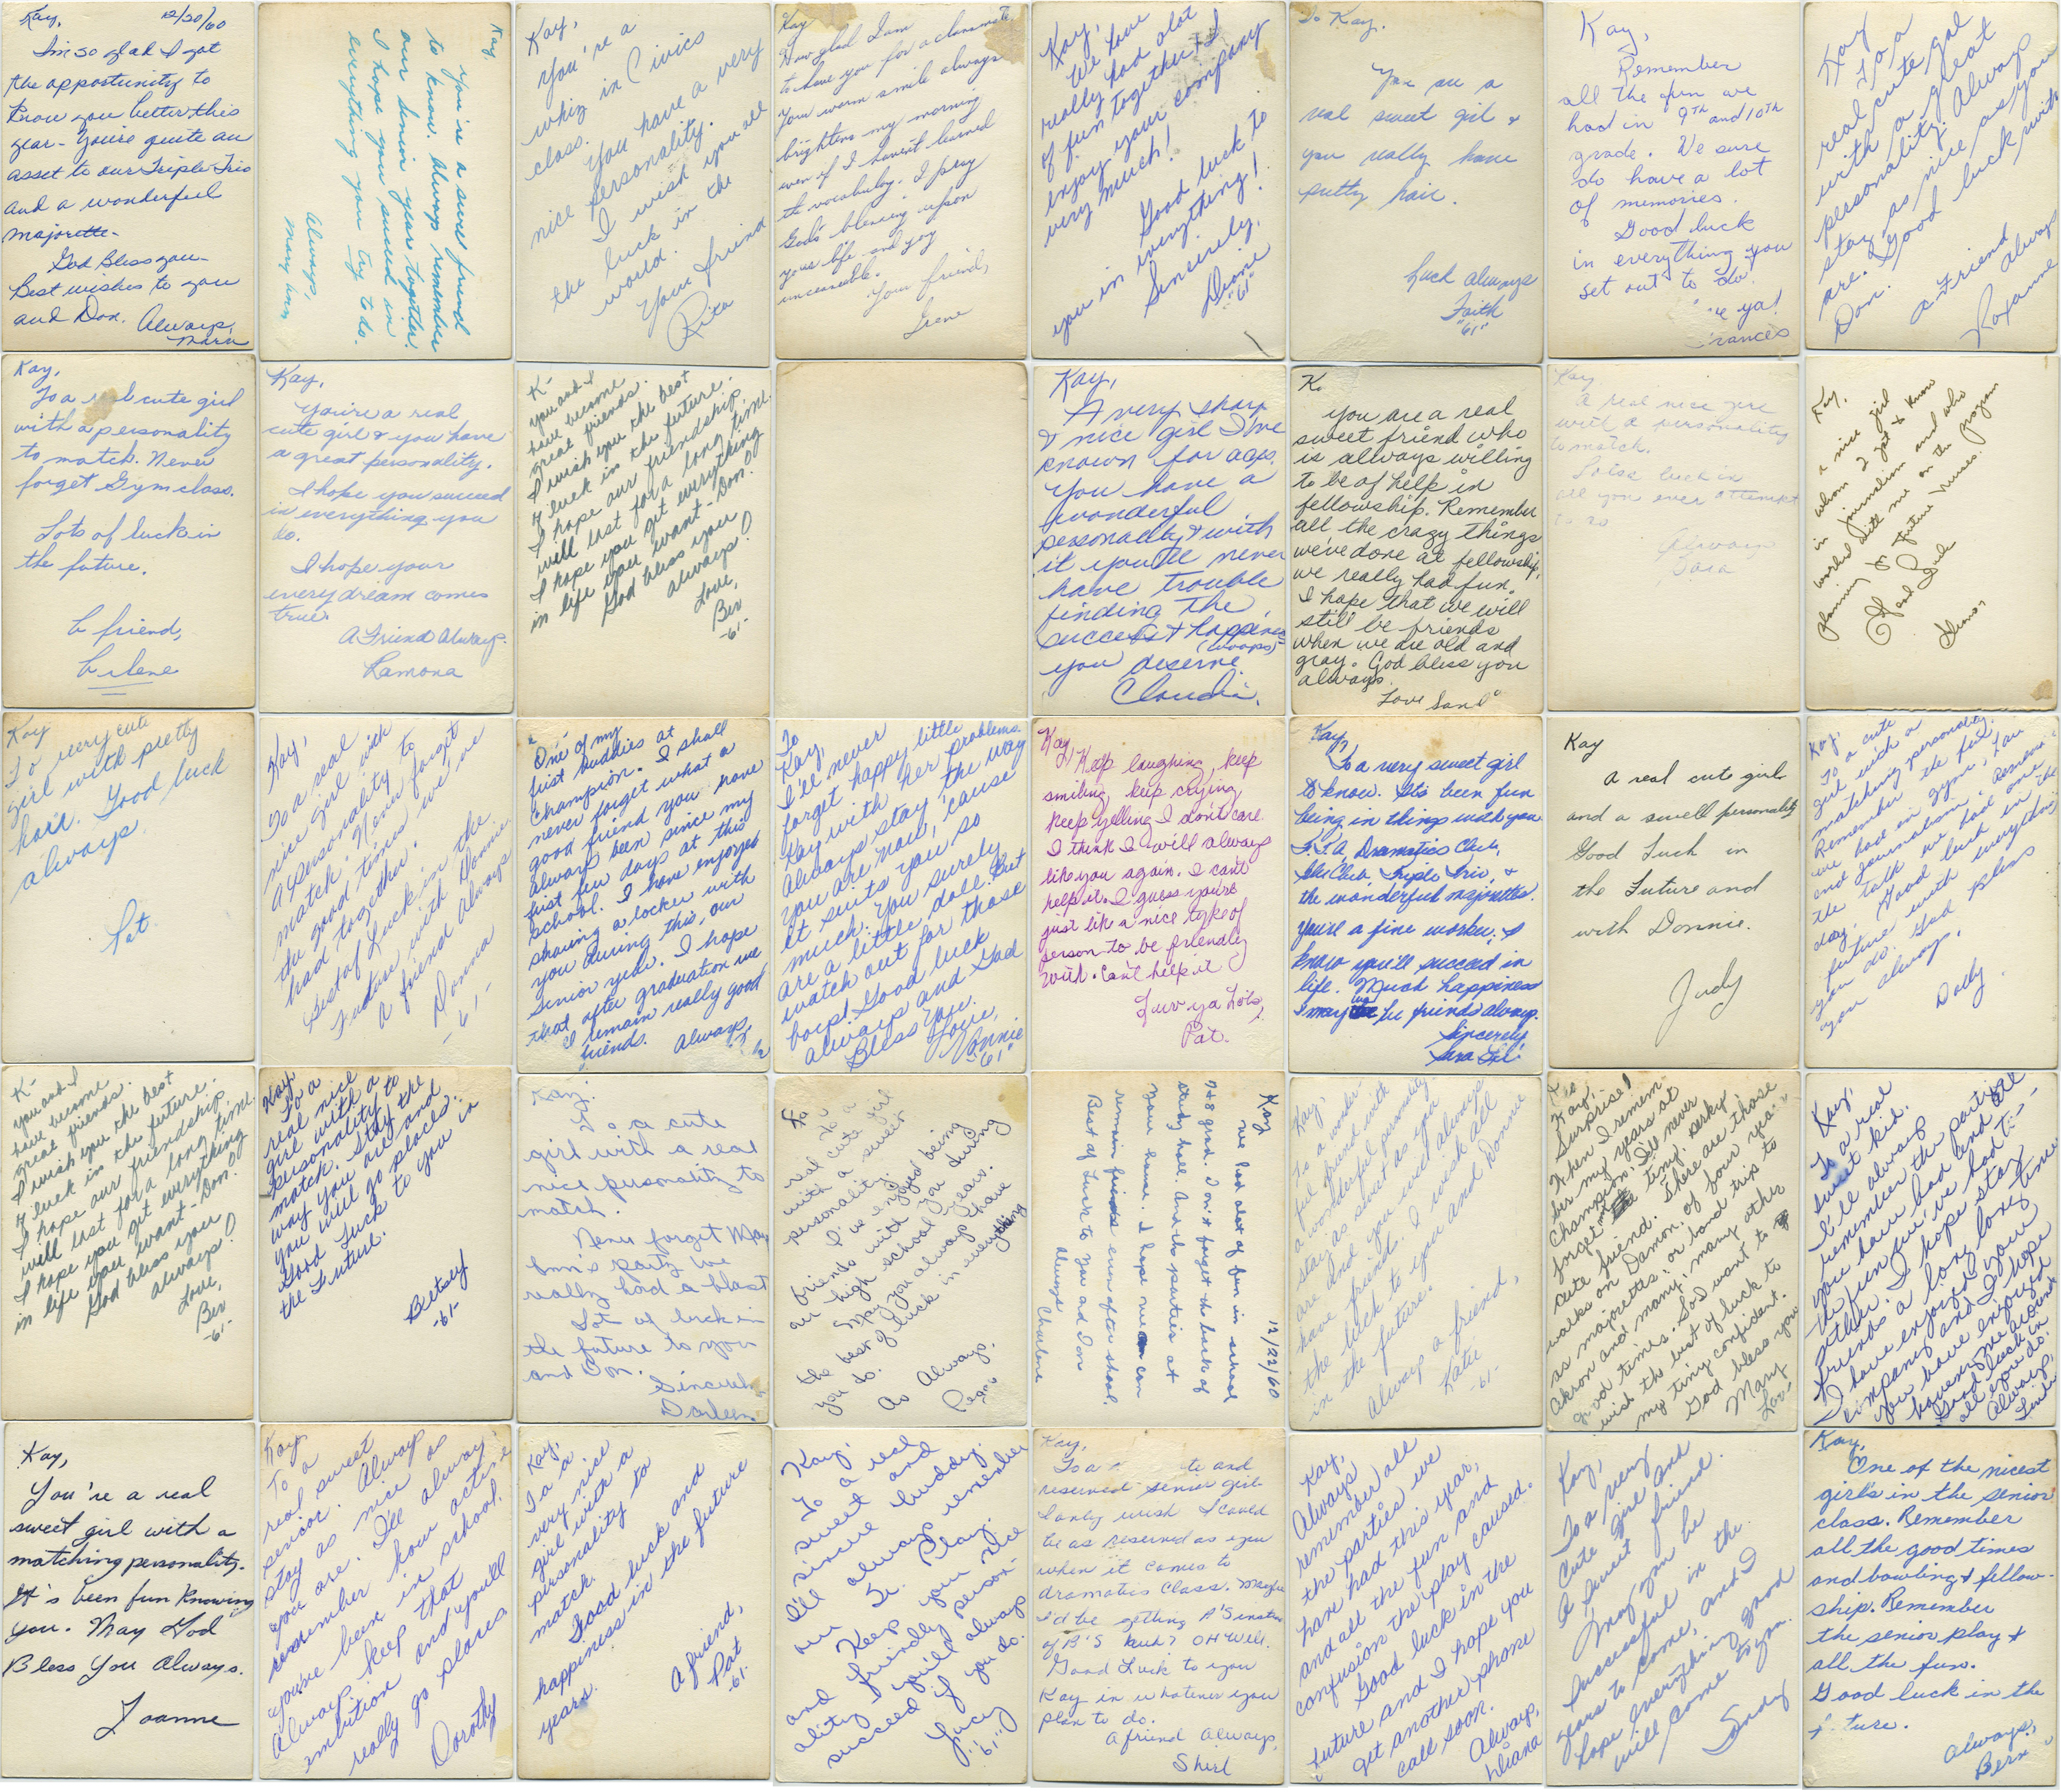 Kay, 12/20/60
I'm so glad I got
the opportunity to
know you better this
year - You're quite an
asset to our Triple Trio
and a wonderful
majorette.
God Bless you -
Best wishes to you
and Don. Always,
Kay,
You're a sure friend
to know. Always remember
our senior year together.
I hope you succeed in
everything you try to do.
Always,
Mary Ann
Kay,
You're a
whiz in Civics
class.
You have a very
nice personality.
I wish you all
the luck in the
world.
Your friend
Rita
Kay
How glad I am
to have you for a classmate
Your warm smile always
brightens my morning
even if I haven't learned
the vocabulary. I pray
God's blessing upon
your life and joy
unceasable.
Your friend,
Irene
Kay,
We have
really had alot
of fun together & I
enjoy your company
very much!
Good luck to
you in everything!
Sincerely,
Diane
"61"
To Kay.
You are a
real sweet girl &
you really have
pretty hair.
Luck always
Faith
"61"
Kay,
Remember
all the fun we
had in 9th and 10th
grade. We sure
do have a lot
of memories.
Good luck
in everything you
set out to do.
ya!
Kay
To a
real cute gal
with a great
personality. Always
stay as nice as you
are. Good luck with
Don.
A friend
always
Roxanne
Kay,
To a cute girl
with a personality
to match. Never
forget Gym class.
Lots of luck in
the future.
A friend,
Arlene
Kay,
You're a real
cute girl & you have
a great personality.
I hope you succeed
in everything you
do.
I hope your
every dream comes
true.
A Friend Always.
Ramona
K-
you and I
have become
great friends.
I wish you the best
of luck in the future.
I hope our friendship
will last for a long time.
I hope you get everything
in life you want - Don.
God bless you
always!
Love,
Bev
-61-
Kay,
A very sharp
& nice girl I've
known for ages.
You have a
wonderful
personality & with
it you'll never
have trouble
finding the
success & happiness
(whoops)
you deserve.
Claudia.
K.
you are a real
sweet friend who
is always willing
to be of help in
fellowship. Remember
all the crazy things
we've done at fellowship,
we really had fun.
I hope that we will
still be friends
when we are old and
gray. God bless you
always.
Love
Kay
A real nice girl
with a personality
to match.
Lotsa luck in
all you ever attempt
to do
Always
Kay,
a nice girl
whom I got to know
in journalism and who
worked with me on the program
planning for Future Nurses.
Good Luck
Kay
To very cute
girl with pretty
hair. Good luck
always.
Pat.
Kay,
To a real
nice girl with
a personality to
match. Never forget
the good times we've
had together.
Best of Luck in the
Future with Donnie.
A friend Always
Donna
-61-
One of my
first buddies at
Champion. I shall
never forget what a
good friend you have
always been since my
first few days at this
school. I have enjoyed
sharing a locker with
you during this, our
senior year. I hope
that after graduation we
remain really good
friends. Always,
To
Kay,
I'll never
forget happy little
Kay with her problems.
Always stay the way
you are now, 'cause
it suits you so
much. You surely
are a little doll. But
watch out for those
boys! Good luck
always and God
Bless You.
Love,
Connie
"61"
Kay,
Keep laughing, keep
smiling keep crying
keep yelling I don't care.
I think I will always
like you again. I can't
help it. I guess you're
just like a nice type of
person to be friendly
with. Can't help it
Luv ya Lots,
Pat.
Kay,
To a very sweet girl
to know. It's been fun
being in things with you
F.T.A. Dramatics Club,
Glee Club, Triple Trio, &
the wonderful majorettes.
You're a fine worker, I
know you'll succeed in
life. Much happiness
& may we be friends always.
Sincerely,
Kay
A real cute girl
and a swell personality
Good Luck in
the Future and
with Donnie.
Judy
Kay,
To a cute
girl with a
matching personality.
Remember the fun
we had in gym,
and journalism. Remember
the talk we had one
day. Good luck in the
future with everything
you do. God bless
you always,
Dolly
K-
you and I
have become
great friends.
I wish you the best
of luck in the future.
I hope our friendship
will last for a long time.
I hope you get everything
in life you want - Don.
God bless you
always!
Love,
Bev
-61-
Kay
To a
real nice
girl with a
personality to
match. Stay the
way you are and
you will go places.
Good Luck to you in
the Future.
Betsey
-61-
Kay,
To a cute
girl with a real
nice personality to
match.
Never forget Mary
Ann's party we
really had a blast
Lot of luck in
the future to you
and Don.
Sincerely,
Darleen
To a
real cute girl
with a sweet
personality.
I've enjoyed being
friends with you during
our high school years.
May you always have
the best of luck in everything
you do.
As Always,
Peggy
12/22/60
Kay
We had alot of fun in school
7 & 8 grad. Don't forget the backs of
study hall. And the parties at
your house. I hope we can
remain friends even after school.
Best of Luck to you and Don
Always
Charlene
Kay,
To a wonder-
ful friend with
a wonderful personality
stay as sweet as you
are and you will always
have friends. I wish all
the luck to you and Donnie
in the future.
Always a friend,
Katie
-61-
Kay,
Surprise!
When I remem-
ber my years at
Champion, I'll never
forget tiny, perky
cute friend. There are those
walks on Damon, of four yrs.
as majorettes, or band trip to
Akron and many, many other
good times. So I want to
wish the best of luck to
my tiny confident.
God bless you
Mary
Lou
Kay,
To a real
sweet kid.
I'll always
remember the parties
you have had and all
the fun we've had to-
gether. I hope we stay
friends a long, long time
I have enjoyed your
company and I hope
you have enjoyed
having me around
Good luck in
all you do.
Always,
Linda
Kay,
You're a real
sweet girl with a
matching personality.
It's been fun knowing
you. May God
Bless You Always.
Joanne
Kay
To a
real sweet
senior. Always
stay as nice as
you are. I'll always
remember how active
you've been in school.
Always keep that
ambition and you'll
really go places
Dorothy
Kay,
To a
very nice
girl with a
personality to
match.
Good luck and
happiness in the future
years.
A friend,
Pat
-61-
Kay,
To a real
sweet and
sincere buddy.
I'll always remember
our Sr. Play.
Keep your nice
and friendly person-
ality & you'll always
succeed if you do.
Lucy
"61"
Kay,
To a and
reserved senior girl.
I only wish I could
be as reserved as you
when it comes to
dramatics class. Maybe
I'd be getting A's instead
of B's huh? OH Well.
Good Luck to you
Kay in whatever you
plan to do.
A friend Always,
Shirl
Kay,
Always
remember all
the parties we
have had this year,
and all the fun and
confusion the play caused.
Good luck in the
future and I hope you
get another phone
call soon.
Always,
Diana
Kay,
To a very
cute girl and
a sweet friend.
May you be
successful in the
years to come, and I
hope everything good
will come to you.
Sandy
Kay,
One of the nicest
girls in the senior
class. Remember
all the good times
and bowling & fellow-
ship. Remember
the senior play &
all the fun.
Good luck in the
future.
Always,
Bern